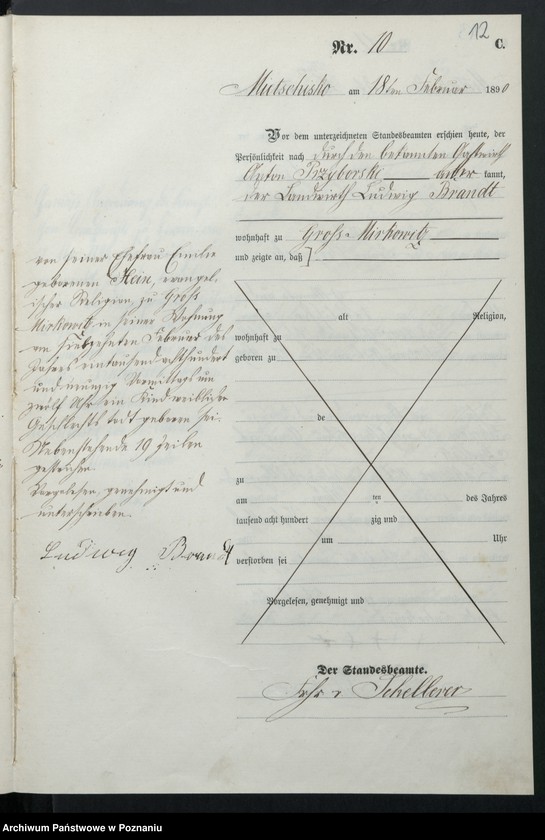 12
Nr. 10 C.
Mietschisko am 18ten Februar 1890
Vor dem unterzeichneten Standesbeamten erschien heute, der
Persönlichkeit nach durch den bekannten Gastwirth
Anton Przyborski anerkannt,
der Landwirth Ludwig Brandt
wohnhaft zu Gross-Mirkowitz
und zeigte an, daß
von seiner Ehefrau Emilie
geborenen Hein, evangel-
ischer Religion, zu Gross
Mirkowitz in seiner Wohnung
am siebzehnten Februar des
Jahres eintausend achthundert
und neunzig Vormittags um
zwölf Uhr ein Kind weiblichen
Geschlechts todt geboren sei.
Nebenstehende 19 Zeilen
gestrichen.
Vorgelesen, genehmigt und
unterschrieben.
Ludwig Brandt
alt Religion,
wohnhaft zu
geboren zu
de
zu
am ten des Jahres
tausend acht hundert zig und
um Uhr
verstorben sei
Vorgelesen, genehmigt und
Der Standesbeamte.
Archiwum Państwowe w Poznaniu